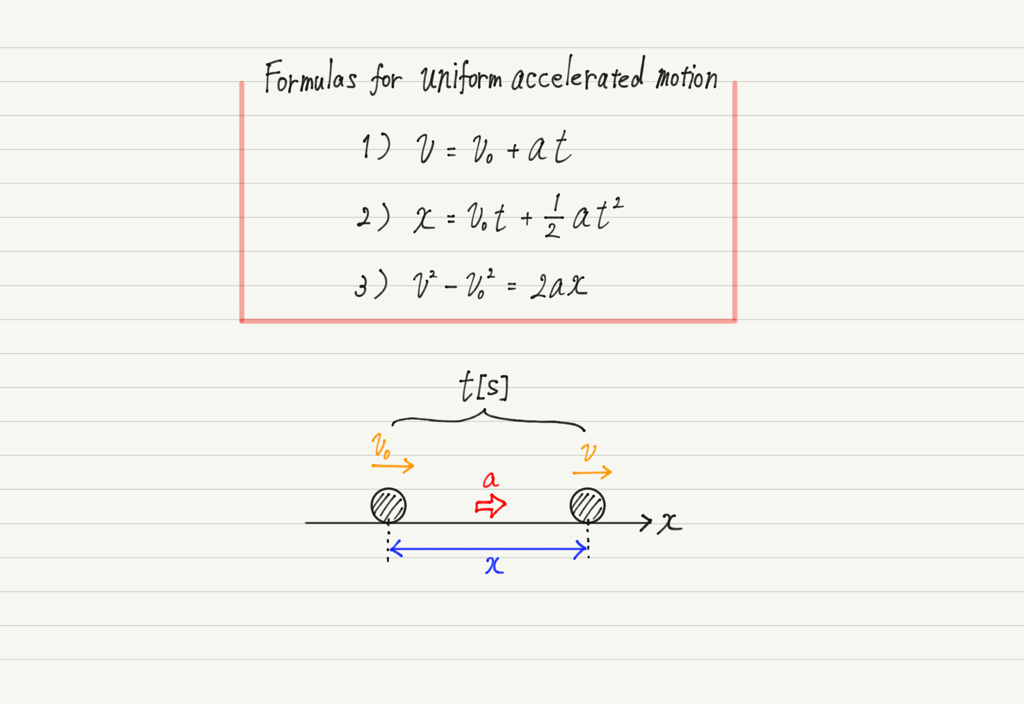 Formulas for uniform accelerated motion
1) v = v₀ + at
2) x = v₀t + 1/2 at²
3) v² - v₀² = 2ax
t[s]
v₀
v
a
x
x